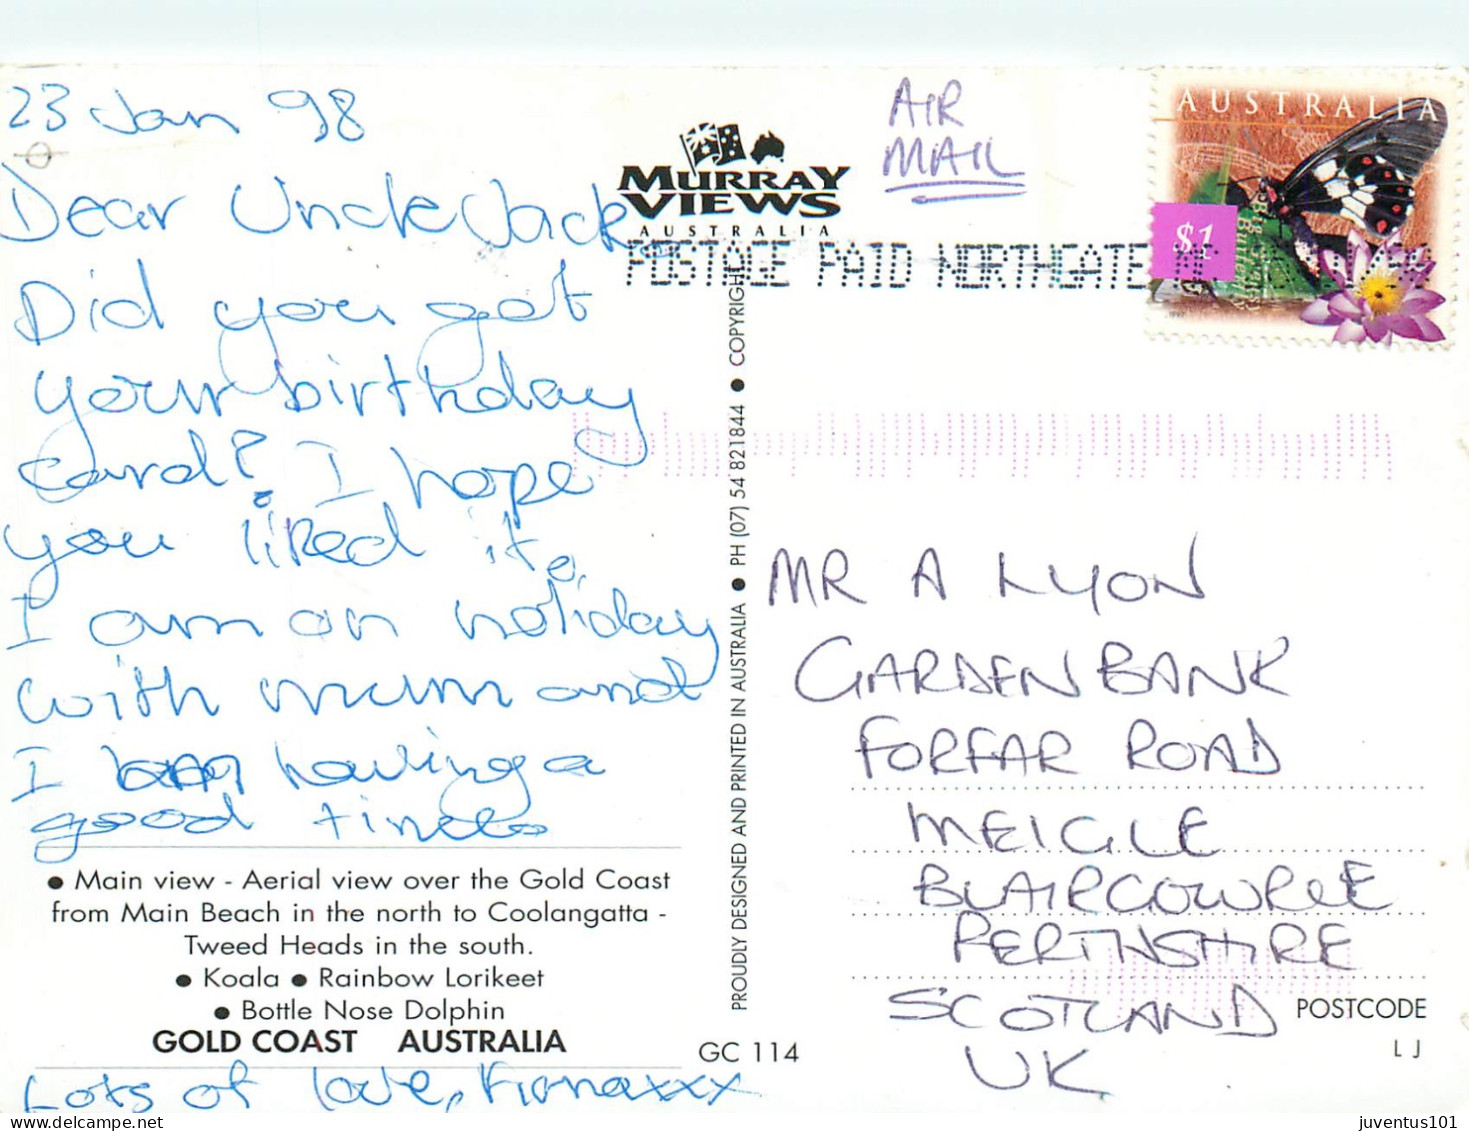 23 Jan 98
Dear Uncle Jack
Did you get
your birthday
card? I hope
you liked it.
I am on holiday
with mum and
I am having a
good time.
• Main view - Aerial view over the Gold Coast
from Main Beach in the north to Coolangatta -
Tweed Heads in the south.
• Koala • Rainbow Lorikeet
• Bottle Nose Dolphin
GOLD COAST AUSTRALIA
Lots of love, Fiona xxx
MURRAY
VIEWS
AUSTRALIA
AIR
MAIL
AUSTRALIA
$1
1997
POSTAGE PAID NORTHGATE MC
PROUDLY DESIGNED AND PRINTED IN AUSTRALIA • PH (07) 54 821844 • COPYRIGHT
GC 114
MR A LYON
GARDENBANK
FORFAR ROAD
MEIGLE
BLAIRGOWRIE
PERTHSHIRE
SCOTLAND
UK
POSTCODE
L J
juventus101